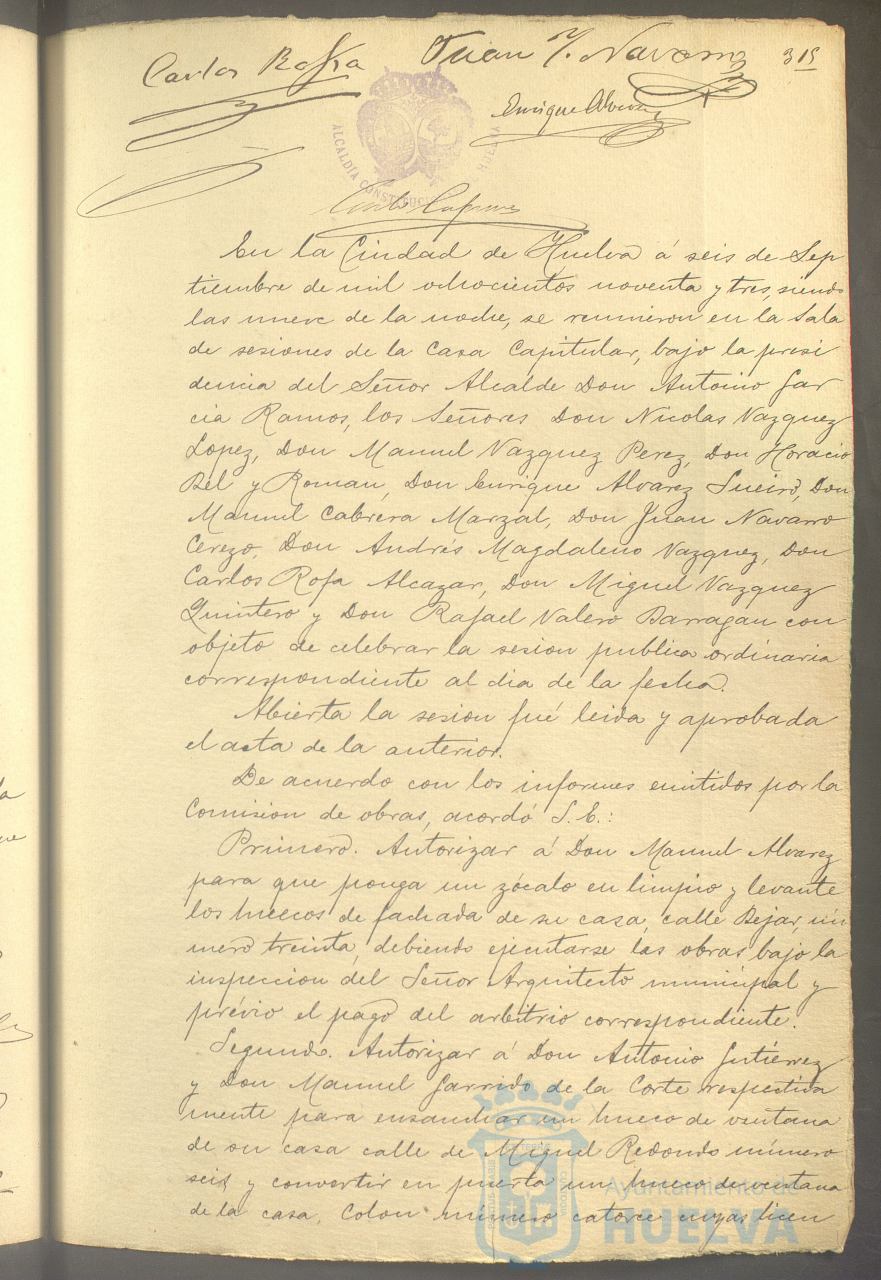 Carlos Rofa Juan J. Navarro 315
Enrique Alvarez
ALCALDÍA CONSTITUCI HUELVA
En la Ciudad de Huelva á seis de Sep
tiembre de mil ochocientos noventa y tres, siendo
las nueve de la noche, se reunieron en la Sala
de sesiones de la Casa Capitular, bajo la presi
dencia del Señor Alcalde Don Antonio Gar
cia Ramos, los Señores Don Nicolas Vazquez
Lopez, Don Manuel Vazquez Perez, Don Horacio
Bel y Roman, Don Enrique Alvarez Sueiro, Don
Manuel Cabrera Marzal, Don Juan Navarro
Cerezo, Don Andrés Magdaleno Vazquez, Don
Carlos Rofa Alcazar, Don Miguel Vazquez
Quintero y Don Rafael Valero Barragan con
objeto de celebrar la sesion publica ordinaria
correspondiente al dia de la fecha.
Abierta la sesion fué leida y aprobada
el acta de la anterior.
De acuerdo con los informes emitidos por la
Comision de obras, acordó S.E.:
Primero. Autorizar á Don Manuel Alvarez
para que ponga un zócalo en limpio y levante
los huecos de fachada de su casa, calle Bejar, nú
mero treinta, debiendo ejecutarse las obras bajo la
inspeccion del Señor Arquitecto municipal y
prévio el pago del arbitrio correspondiente.
Segundo. Autorizar á Don Antonio Gutiérrez
y Don Manuel Garrido de la Corte respectiva
mente para ensanchar un hueco de ventana
de su casa calle de Miguel Redondo número
seis y convertir en puerta un hueco de ventana
de la casa, Colon número catorce cuyas licen
Ayuntamiento de
HUELVA